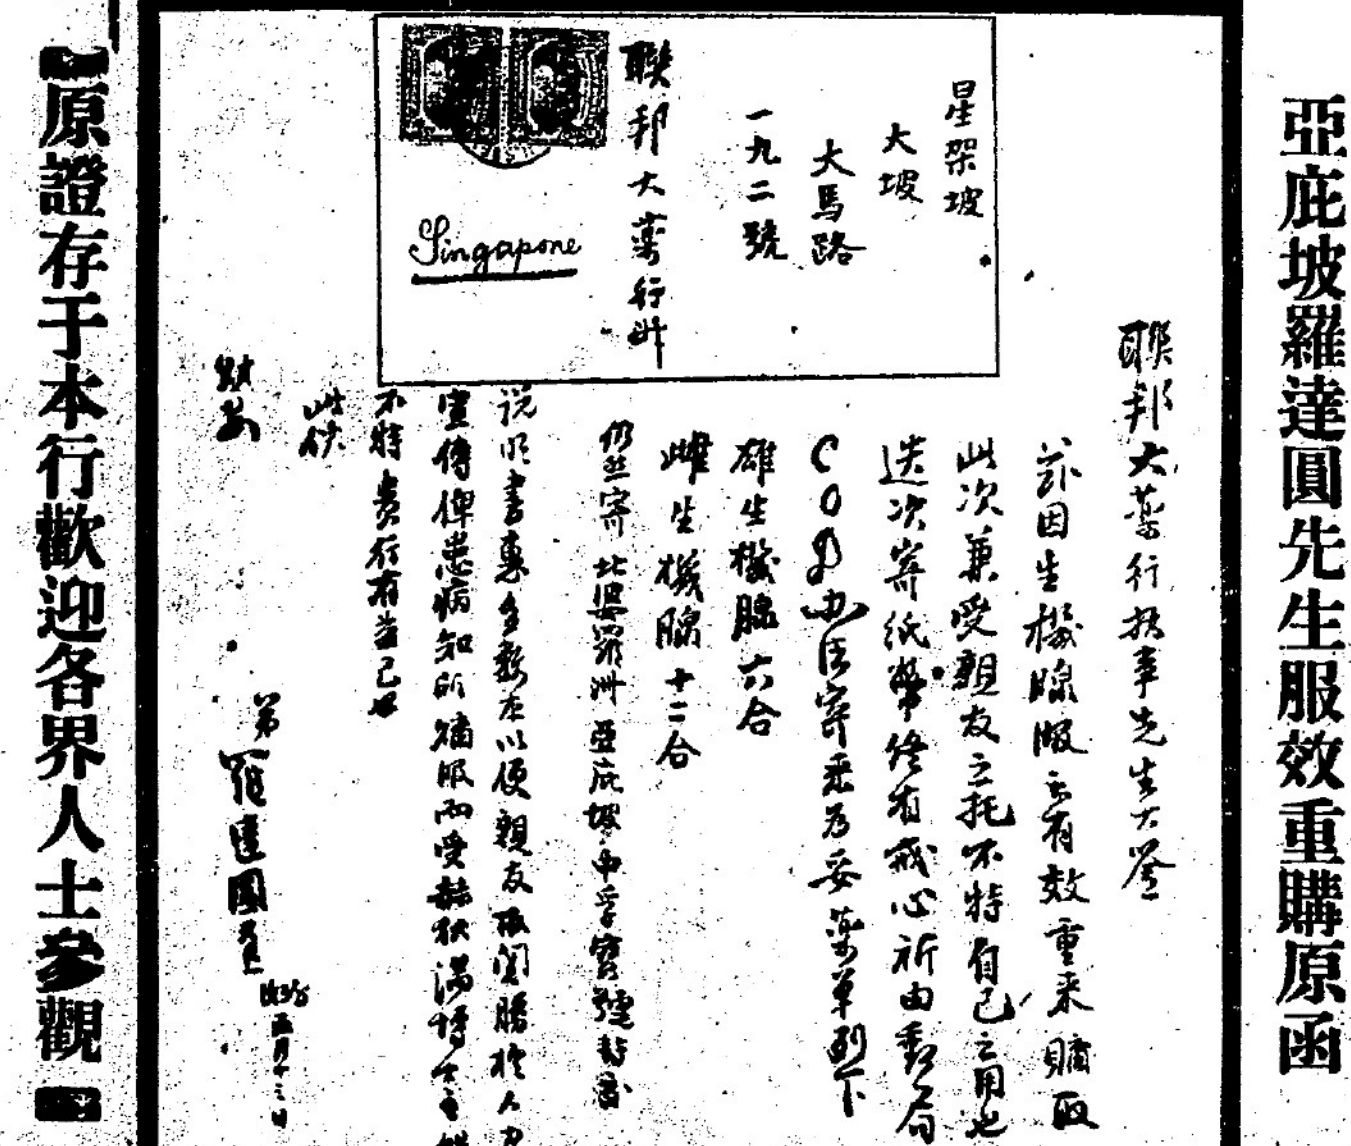 亞庇坡羅達圓先生服效重購原函
星架坡
大坡
大馬路
一九二號
聯邦大藥行
Singapore
聯邦大藥行執事先生大鑒
因生機腺服之有效重來購取
此次兼受親友之托不特自己之用也
迭次寄紙幣終有戒心祈由郵局
COD 寄來為妥藥單列下
雄生機腺六合
雌生機腺十二合
仍然寄北婆羅洲亞庇坡
説明書惠多數左以便親友
宣傳俾患病知所購服而受
不特貴行有益已也
此候
財安
弟羅達圓
原證存于本行歡迎各界人士參觀